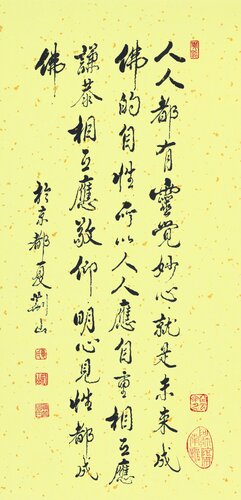 人人都有靈覺妙心就是未来成
佛的自性所以人人應自重相互應
謙恭相互應敬仰明心見性都成
佛
於京都夏荊山